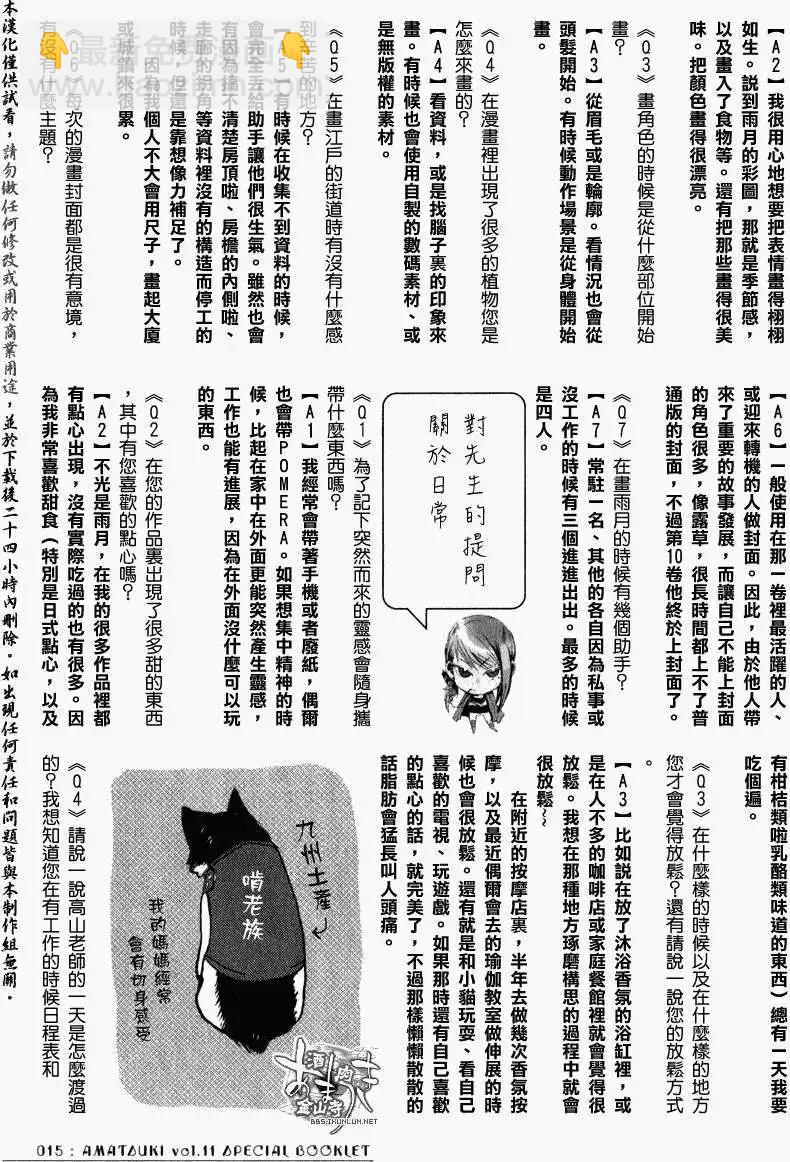 【A2】我很用心地想要把表情畫得栩栩
如生。説到雨月的彩圖，那就是季節感，
以及畫入了食物等。還有把那些畫得很美
味。把顏色畫得很漂亮。
《Q3》畫角色的時候是從什麼部位開始
畫？
【A3】從眉毛或是輪廓。看情況也會從
頭髮開始。有時候動作場景是從身體開始
畫。
《Q4》在漫畫裡出現了很多的植物您是
怎麼來畫的？
【A4】看資料，或是找腦子裏的印象來
畫。有時候也會使用自製的數碼素材、或
是無版權的素材。
《Q5》在畫江戶的街道時有沒有什麼感
到辛苦的地方？
【A5】有時候在收集不到資料的時候，
會完全丟給助手讓他們很生氣。雖然也會
有因為搞不清楚房頂啦、房檐的內側啦、
走廊的拐角等資料裡沒有的構造而停工的
時候，但還是靠想像力補足了。
因為我個人不大會用尺子，畫起大廈
或城鎮來很累。
《Q6》每次的漫畫封面都是很有意境，
有沒有什麼主題？
【A6】一般使用在那一卷裡最活躍的人、
或迎來轉機的人做封面。因此，由於他人帶
來了重要的故事發展，而讓自己不能上封面
的角色很多，像露草，很長時間都上不了普
通版的封面，不過第10卷他終於上封面了。
《Q7》在畫雨月的時候有幾個助手？
【A7】常駐一名、其他的各自因為私事或
沒工作的時候有三個進進出出。最多的時候
是四人。
對先生的提問
關於日常
《Q1》為了記下突然而來的靈感會隨身攜
帶什麼東西嗎？
【A1】我經常會帶著手機或者廢紙，偶爾
也會帶POMERA。如果想集中精神的時
候，比起在家中在外面更能突然產生靈感，
工作也能有進展，因為在外面沒什麼可以玩
的東西。
《Q2》在您的作品裏出現了很多甜的東西
，其中有您喜歡的點心嗎？
【A2】不光是雨月，在我的很多作品裡都
有點心出現，沒有實際吃過的也有很多。因
為我非常喜歡甜食（特別是日式點心，以及
有柑桔類啦乳酪類味道的東西）總有一天我要
吃個遍。
《Q3》在什麼樣的時候以及在什麼樣的地方
您才會覺得放鬆？還有請說一說您的放鬆方式
。
【A3】比如說在放了沐浴香氛的浴缸裡，或
是在人不多的咖啡店或家庭餐館裡就會覺得很
放鬆。我想在那種地方琢磨構思的過程中就會
很放鬆～
在附近的按摩店裏，半年去做幾次香氛按
摩，以及最近偶爾會去的瑜伽教室做伸展的時
候也會很放鬆。還有就是和小貓玩耍、看自己
喜歡的電視、玩遊戲。如果那時還有自己喜歡
的點心的話，就完美了，不過那樣懶懶散散的
話脂肪會猛長叫人頭痛。
九州土產
啃老族
我的媽媽經常
會有切身感受
《Q4》請說一說高山老師的一天是怎麼渡過
的？我想知道您在有工作的時候日程表和
本漢化僅供試看，請勿做任何修改或用於商業用途，並於下載後二十四小時內刪除。如出現任何責任和問題皆與本制作組無關。
BBS.IKUNLUN.NET
015 : AMATSUKI vol.11 SPECIAL BOOKLET